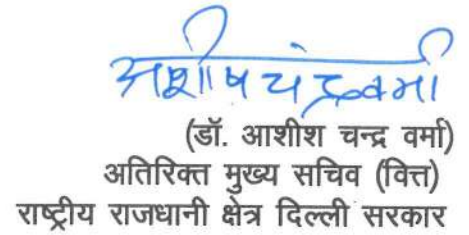 आशीष चंद्र वर्मा
(डॉ. आशीश चन्द्र वर्मा)
अतिरिक्त मुख्य सचिव (वित्त)
राष्ट्रीय राजधानी क्षेत्र दिल्ली सरकार